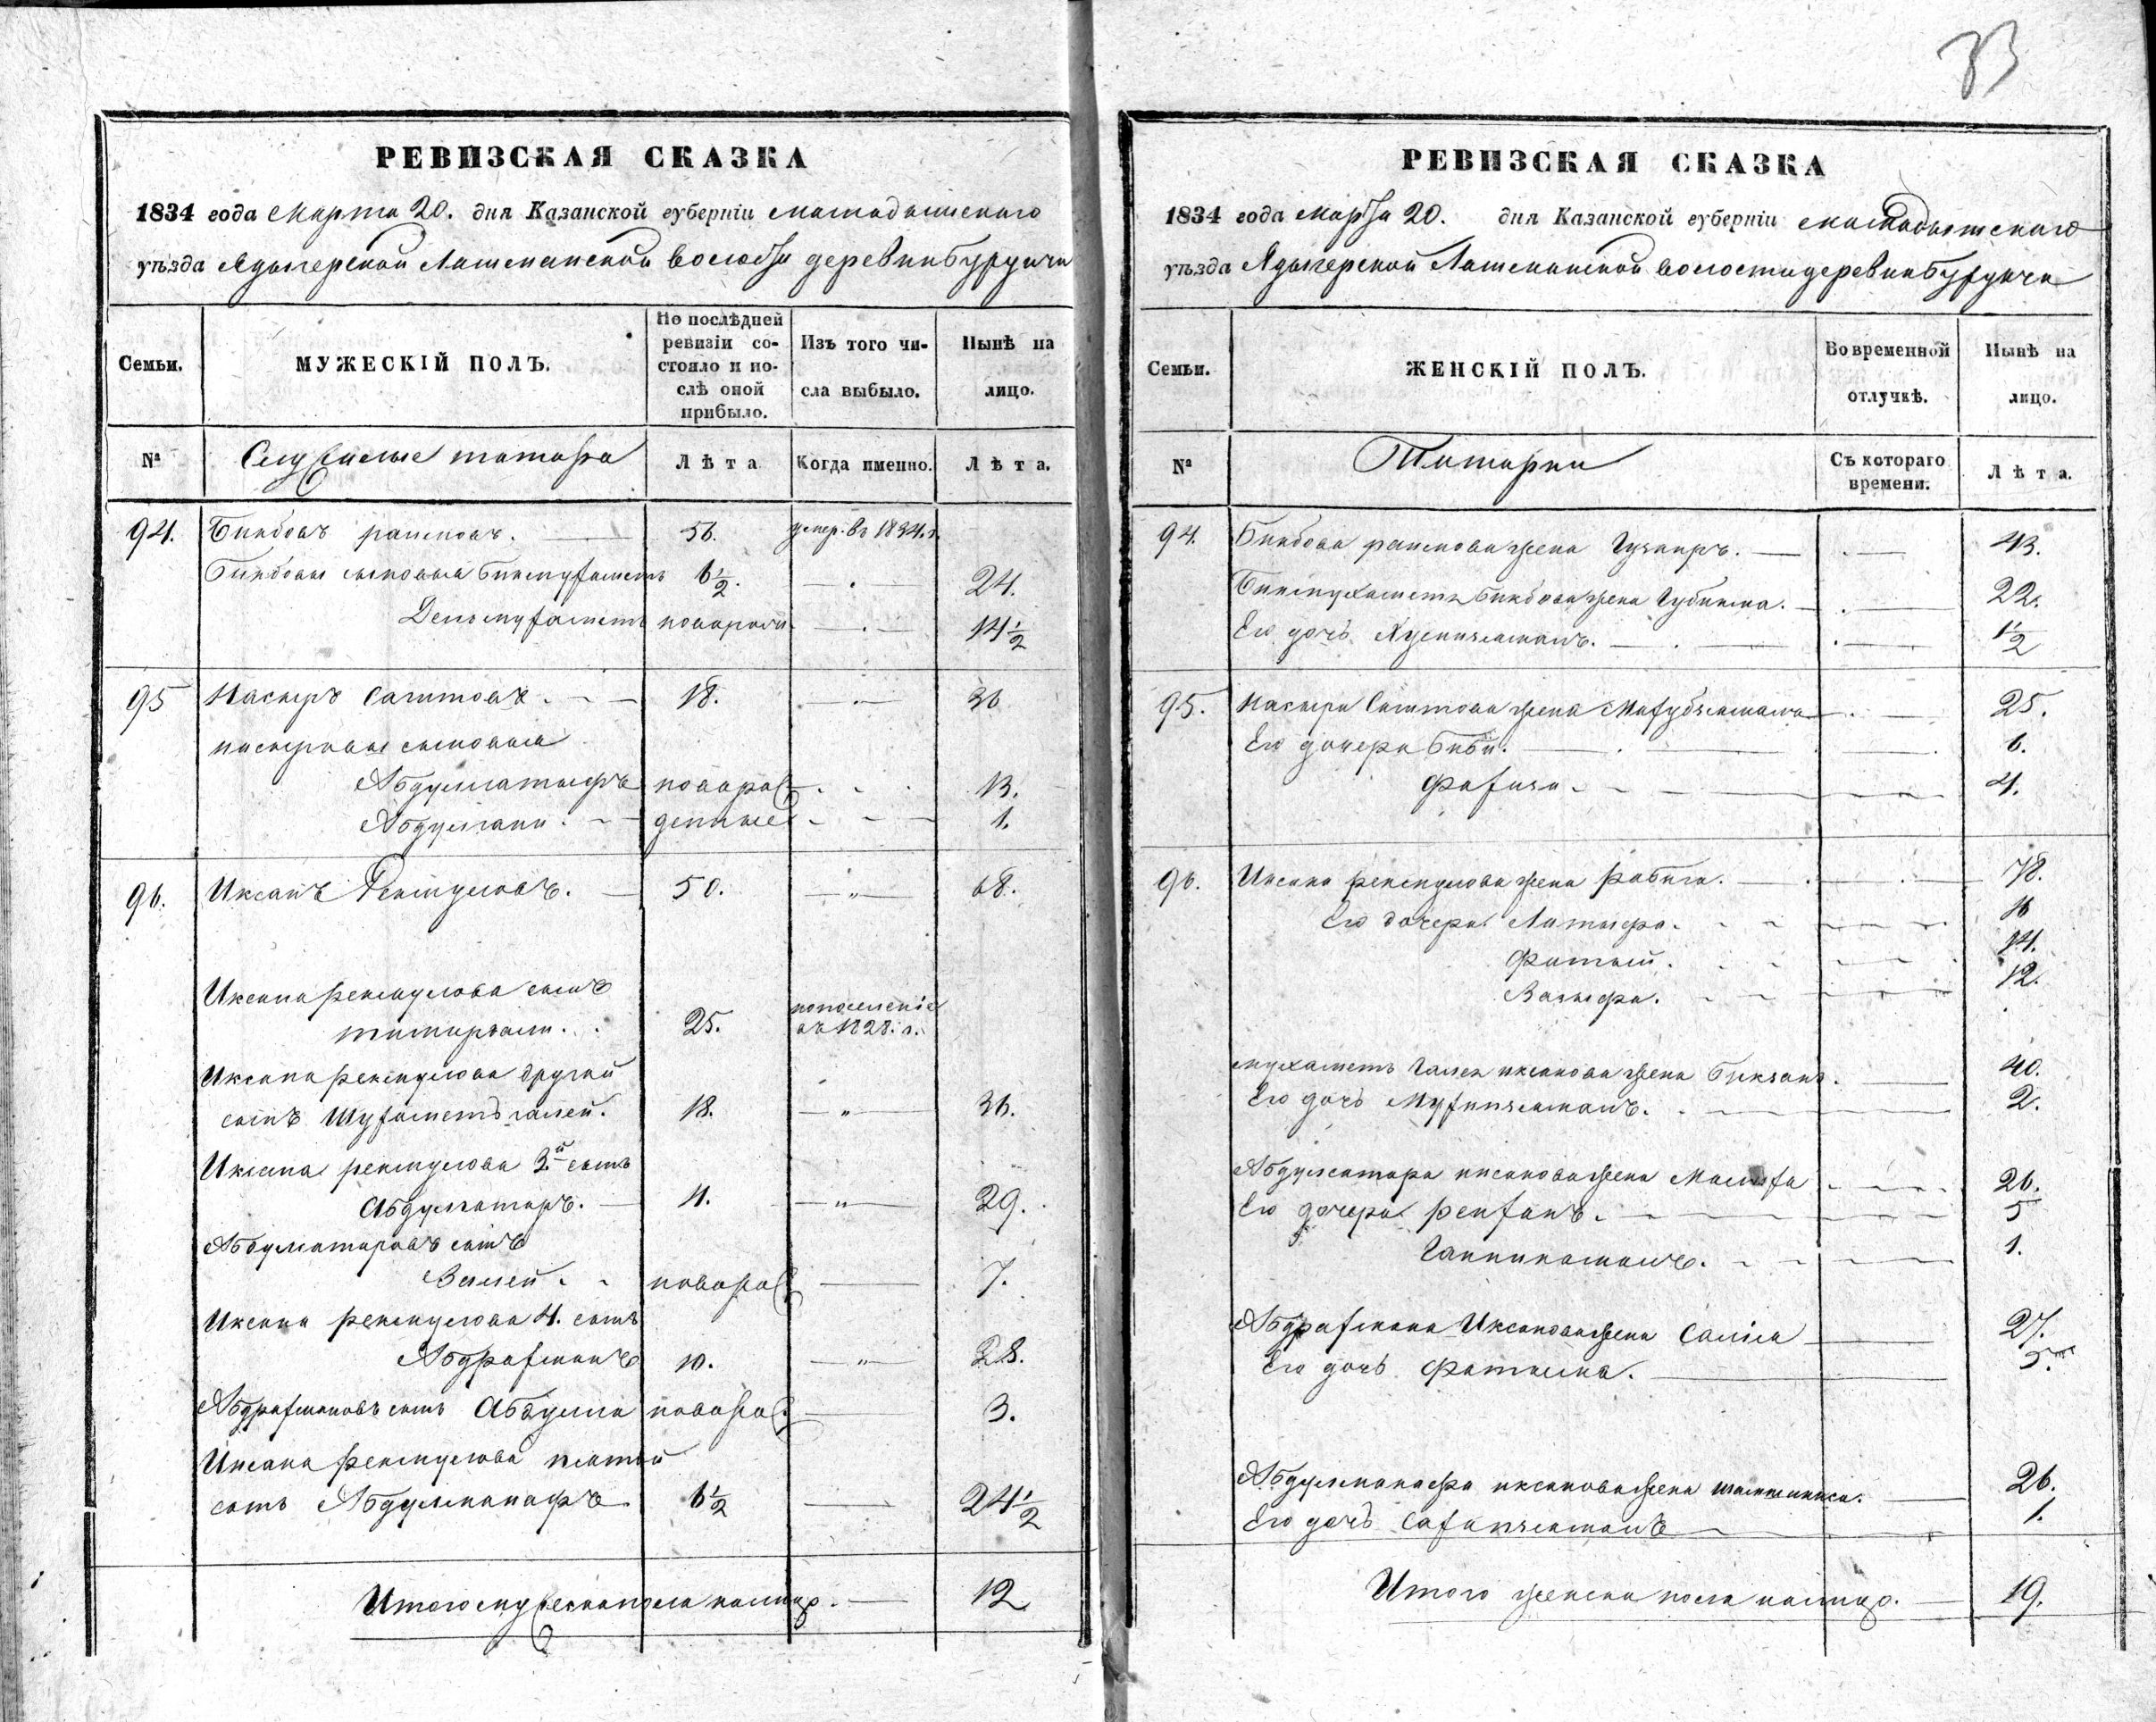 83
РЕВИЗСКАЯ СКАЗКА
1834 года Марта 20. дня Казанской губерніи Мамадышскаго
уѣзда Адаевской Лашманской волости деревни Бурунчи
Семьи.
МУЖЕСКІЙ ПОЛЪ.
По послѣдней ревизіи состояло и послѣ оной прибыло.
Изъ того числа выбыло.
Нынѣ на лицо.
№
Служилые татара
Лѣта
Когда именно.
Лѣта.
94. Бикбовъ раиповъ. 56. умер. въ 1834. г.
Бикбовы сыновья Бикмухаметъ 6½. 24.
Дельмухаметъ новорожд. 14½
95 Насыръ Сагитовъ. 18. 36
насыровы сыновья
Абдуллатыфъ новорож 13.
Абдулгани. денные 1.
96. Иксанъ Рекмуловъ. 50. 68.
Иксана рекмулова сынъ
тимиргали. 25. на поселеніе въ 1828. г.
Иксана рекмулова другой
сынъ Мухаметъ галей. 18. 36.
Иксана рекмулова 3й сынъ
Абдулсатаръ. 11. 29.
Абдулсатаровъ сынъ
Валей новорож 7.
Иксана рекмулова 4. сынъ
Абдрахманъ 10. 28.
Абдрахмановъ сынъ Абдулла новорож 3.
Иксана рекмулова пятый
сынъ Абдулманафъ 6½ 24½
Итого мужеска пола налицо. 12
РЕВИЗСКАЯ СКАЗКА
1834 года Марта 20. дня Казанской губерніи Мамадышскаго
уѣзда Лашманской волости деревни Бурунчи
Семьи.
ЖЕНСКІЙ ПОЛЪ.
Во временной отлучкѣ.
Нынѣ на лицо.
№
Татарки
Съ котораго времени.
Лѣта.
94. Бикбова раипова жена 43.
Бикмухаметя Бикбова жена Губина. 22.
Его дочь 1½
95. Насыра Сагитова жена Махубзямалъ 25.
Его дочери Биби. 6.
Фахиза 4.
96. Иксана рекмулова жена Рабига. 78.
Его дочери Латыфа. 16
Фатый. 14.
Вазыфа. 12.
мухаметъ Галея иксанова жена Бикзянъ. 40.
Его дочь Мухинзямалъ. 2.
Абдулсатара иксанова жена Малиха 26.
Его дочери рейханъ. 5
Ганникамалъ. 1.
Абдрахмана Иксанова жена Салима 27.
Его дочь Фатыма. 5.
Абдулманафа иксанова жена шамшиниса. 26.
Его дочь Сахипзямалъ 1.
Итого женска пола налицо. 19.